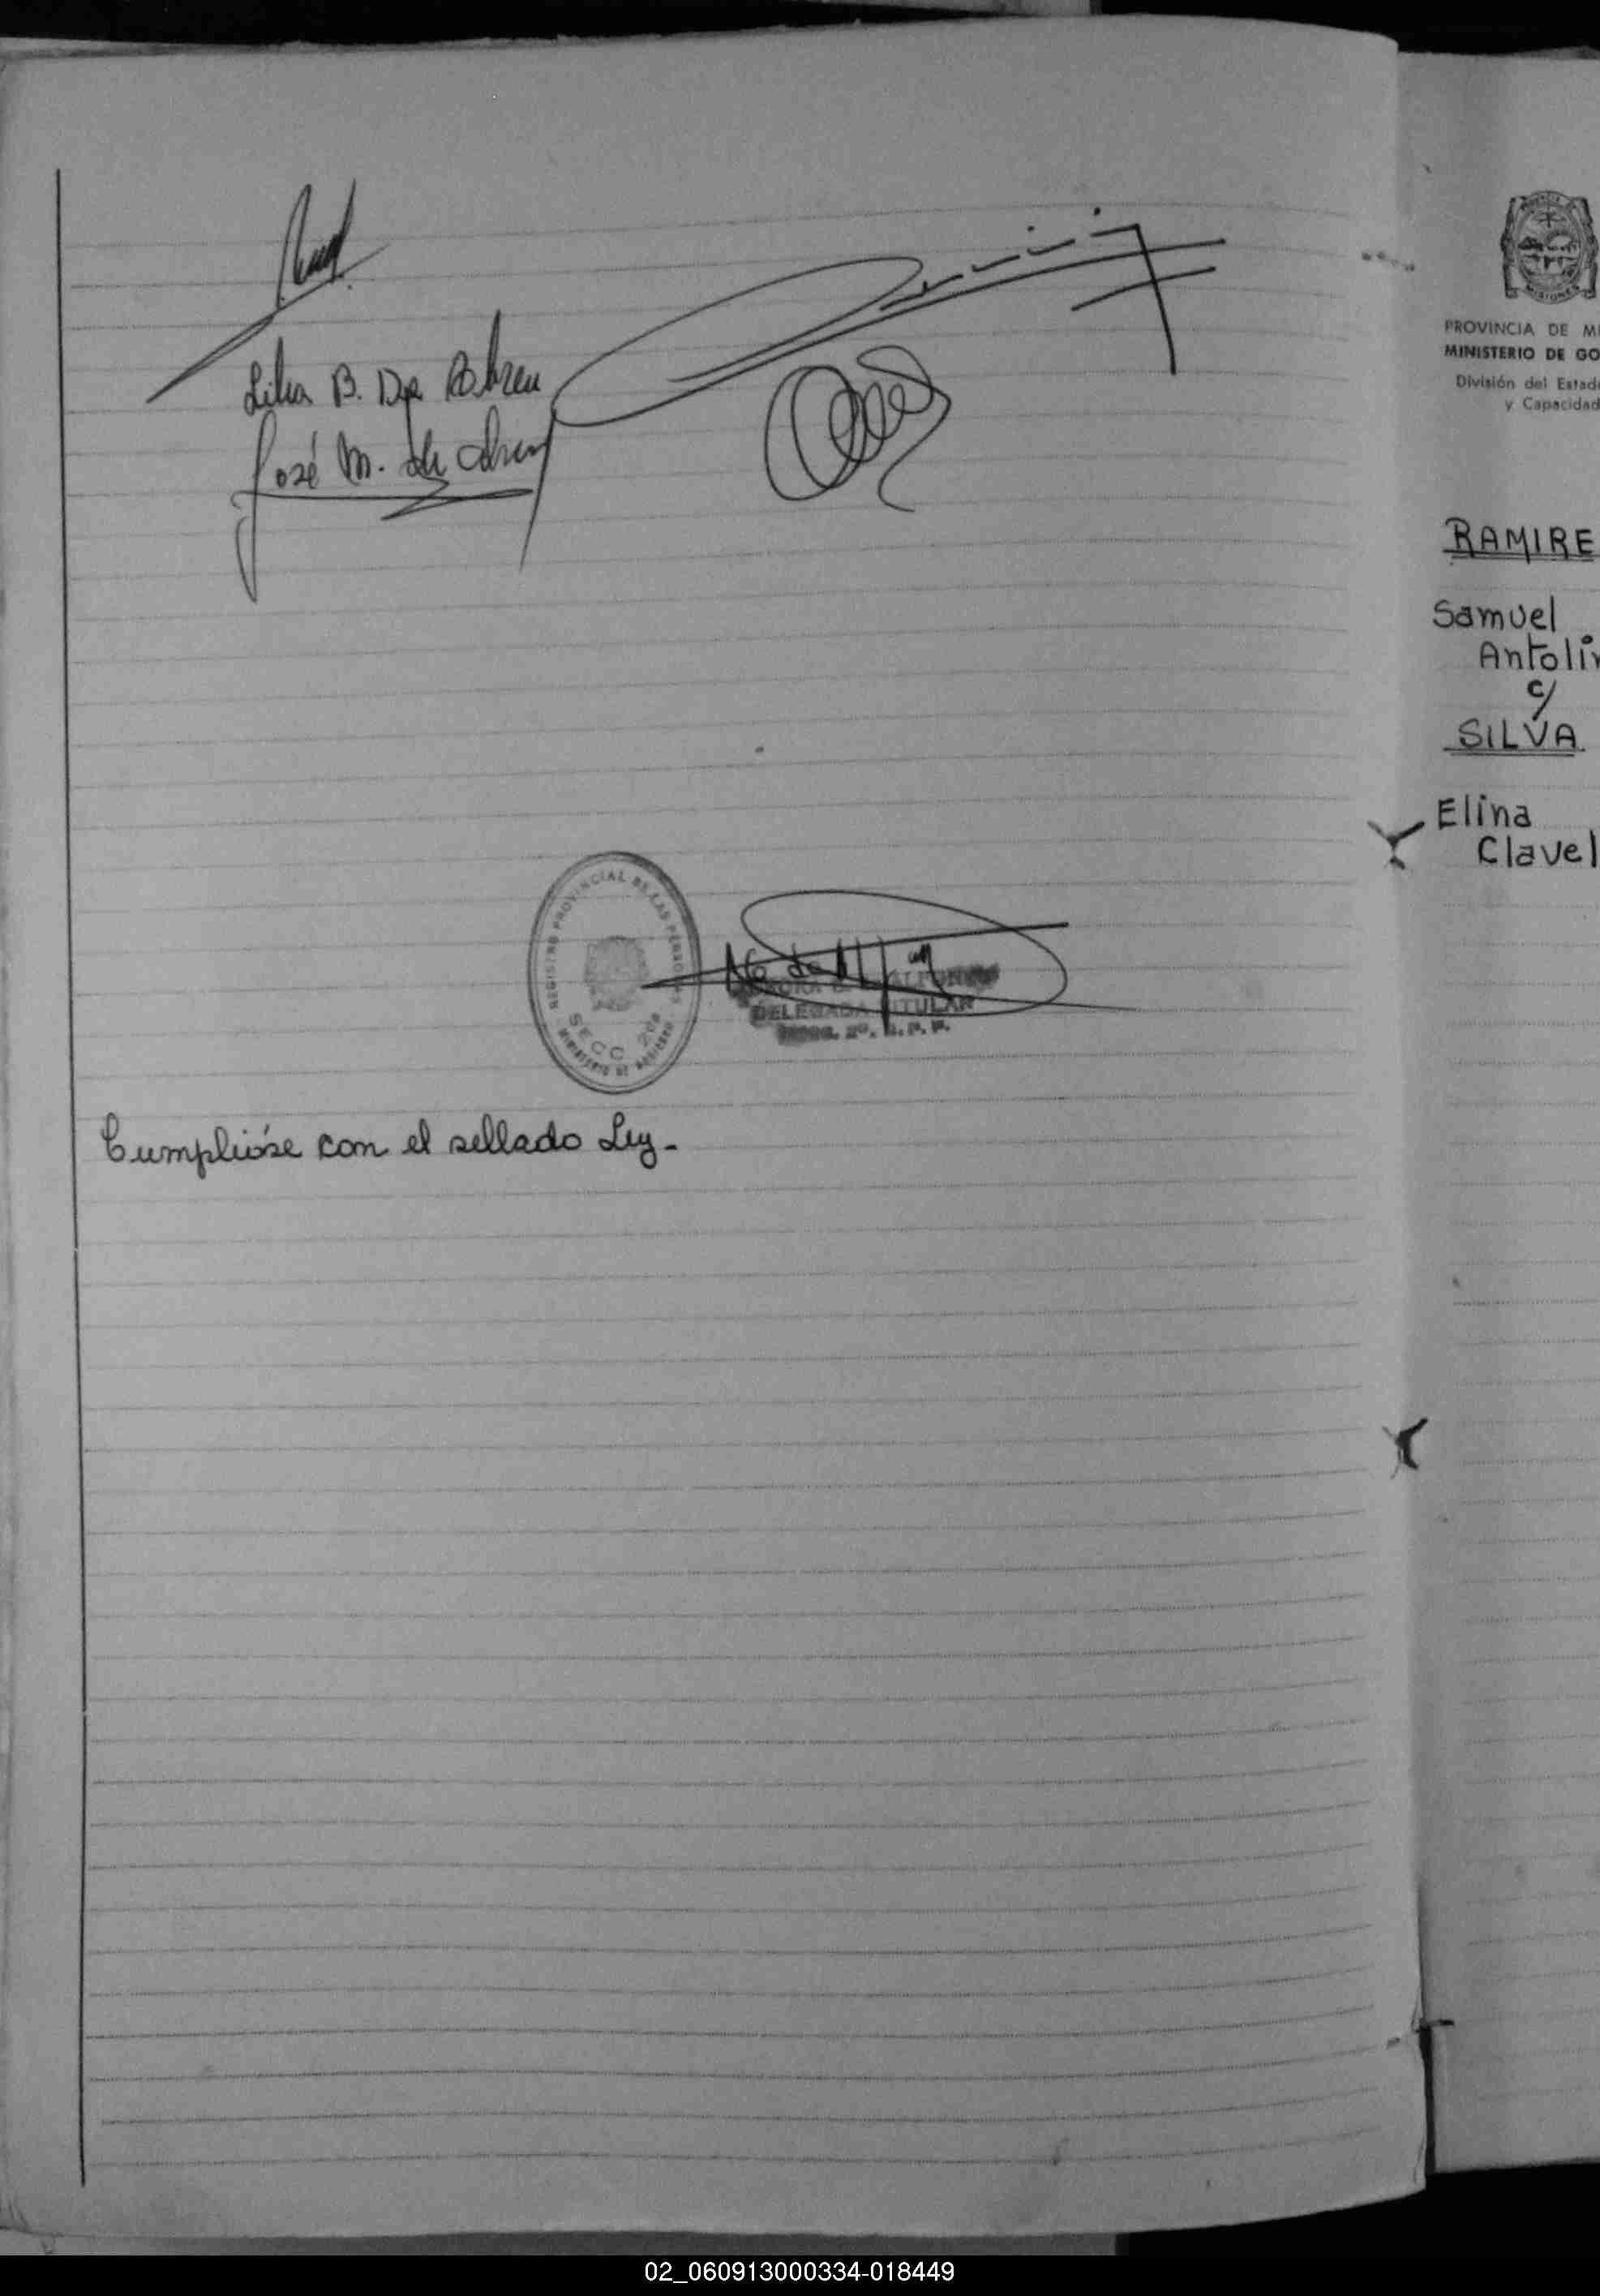 Lilia B. De Abreu
José M. de Abreu
REGISTRO PROVINCIAL DE LAS PERSONAS
SECC. 2da
MINISTERIO DE GOBIERNO
DELEGADA TITULAR
Cumplióse con el sellado Ley-
MISIONES
PROVINCIA DE MI
MINISTERIO DE GO
División del Estad
y Capacidad
RAMIRE
Samuel
Antolin
c/
SILVA
Elina
Clavel
02_060913000334-018449